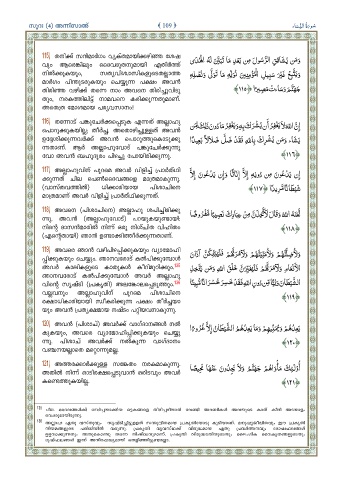 സൂറ (4) അന്നിസാഅ്
( 109 )
115) തനിക്ക് സന്മാർഗം വ്യക്തമായിക്കഴിഞ്ഞ ശേഷ
വും ആരെങ്കിലും ദൈവദൂതനുമായി എതിർത്ത്
നിൽക്കുകയും, സത്യവിശ്വാസികളുടേതല്ലാത്ത
മാർഗം പിന്തുടരുകയും ചെയ്യുന്ന പക്ഷം അവൻ
തിരിഞ്ഞ വഴിക്ക് തന്നെ നാം അവനെ തിരിച്ചുവിടു
തും, നരകത്തിലിട്ട് നാമവനെ കരിക്കുന്നതുമാണ്.
അതെത്ര മോശമായ പര്യവസാനം!
116) തന്നോട് പങ്കുചേർക്കപ്പെടുക എന്നത് അല്ലാഹു
പൊറുക്കുകയില്ല; തീർച്ച. അതൊഴിച്ചുള്ളത് അവൻ
ഉദ്ദേശിക്കുന്നവർക്ക് അവൻ പൊറുത്തുകൊടുക്കു
ന്നതാണ്. ആർ അല്ലാഹുവോട് പങ്കുചേർക്കുന്നു
വോ അവൻ ബഹുദൂരം പിഴച്ചു പോയിരിക്കുന്നു.
117) അല്ലാഹുവിന് പുറമെ അവർ വിളിച്ച് പ്രാർത്ഥി
ക്കുന്നത് ചില പെൺദൈവങ്ങളെ മാത്രമാകുന്നു.
(വാസ്തവത്തിൽ) ധിക്കാരിയായ പിശാചിനെ
മാത്രമാണ് അവർ വിളിച്ച് പ്രാർത്ഥിക്കുന്നത്.
118) അവനെ (പിശാചിനെ) അല്ലാഹു ശപിച്ചിരിക്കു
ന്നു. അവൻ (അല്ലാഹുവോട്) പറയുകയുണ്ടായി:
നിന്റെ ദാസൻമാരിൽ നിന്ന് ഒരു നിശ്ചിത വിഹിതം
(എന്റേതായി) ഞാൻ ഉണ്ടാക്കിത്തീർക്കുന്നതാണ്.
119) അവരെ ഞാൻ വഴിപിഴപ്പിക്കുകയും വ്യാമോഹി
പ്പിക്കുകയും ചെയ്യും. ഞാനവരോട് കൽപിക്കുമ്പോൾ
അവർ കാലികളുടെ കാതുകൾ കീറിമുറിക്കും.
ഞാനവരോട് കൽപിക്കുമ്പോൾ അവർ അല്ലാഹു
വിന്റെ സൃഷ്ടി (പ്രകൃതി) അലങ്കോലപ്പെടുത്തും.
വല്ലവനും അല്ലാഹുവിന് പുറമെ പിശാചിനെ
രക്ഷാധികാരിയായി സ്വീകരിക്കുന്ന പക്ഷം തീർച്ചയാ
യും അവൻ പ്രത്യക്ഷമായ നഷ്ടം പറ്റിയവനാകുന്നു.
120) അവൻ (പിശാച്) അവർക്ക് വാഗ്ദാനങ്ങൾ നൽ
കുകയും, അവരെ വ്യാമോഹിപ്പിക്കുകയും ചെയ്യു
ന്നു. പിശാച് അവർക്ക് നൽകുന്ന വാഗ്ദാനം
വഞ്ചനയല്ലാതെ മറ്റൊന്നുമല്ല.
121) അത്തരക്കാർക്കുള്ള സങ്കേതം നരകമാകുന്നു.
അതിൽ നിന്ന് ഓടിരക്ഷപ്പെടുവാൻ ഒരിടവും അവർ
കണ്ടെത്തുകയില്ല.
وَمَن يُشَاقِقِ ٱلرَّسُولَ مِنۢ بَعْدِ مَا تَبَيَّنَ لَهُ ٱلْهُدَىٰ
وَيَتَّبِعْ غَيْرَ سَبِيلِ ٱلْمُؤْمِنِينَ نُوَلِّهِۦ مَا تَوَلَّىٰ وَنُصْلِهِۦ
جَهَنَّمَ وَسَآءَتْ مَصِيرًا ﴿١١٥﴾
إِنَّ ٱللَّهَ لَا يَغْفِرُ أَن يُشْرَكَ بِهِۦ وَيَغْفِرُ مَا دُونَ ذَٰلِكَ لِمَن
يَشَآءُ وَمَن يُشْرِكْ بِٱللَّهِ فَقَدْ ضَلَّ ضَلَٰلًۢا بَعِيدًا
﴿١١٦﴾
إِن يَدْعُونَ مِن دُونِهِۦٓ إِلَّآ إِنَٰثًا وَإِن يَدْعُونَ إِلَّا
شَيْطَٰنًا مَّرِيدًا ﴿١١٧﴾
لَّعَنَهُ ٱللَّهُ وَقَالَ لَأَتَّخِذَنَّ مِنْ عِبَادِكَ نَصِيبًا مَّفْرُوضًا
﴿١١٨﴾
وَلَأُضِلَّنَّهُمْ وَلَأُمَنِّيَنَّهُمْ وَلَءَامُرَنَّهُمْ فَلَيُبَتِّكُنَّ ءَاذَانَ
ٱلْأَنْعَٰمِ وَلَءَامُرَنَّهُمْ فَلَيُغَيِّرُنَّ خَلْقَ ٱللَّهِ وَمَن يَتَّخِذِ
ٱلشَّيْطَٰنَ وَلِيًّا مِّن دُونِ ٱللَّهِ فَقَدْ خَسِرَ خُسْرَانًا مُّبِينًا
﴿١١٩﴾
يَعِدُهُمْ وَيُمَنِّيهِمْ وَمَا يَعِدُهُمُ ٱلشَّيْطَٰنُ إِلَّا غُرُورًا
﴿١٢٠﴾
أُو۟لَٰٓئِكَ مَأْوَىٰهُمْ جَهَنَّمُ وَلَا يَجِدُونَ عَنْهَا مَحِيصًا
﴿١٢١﴾